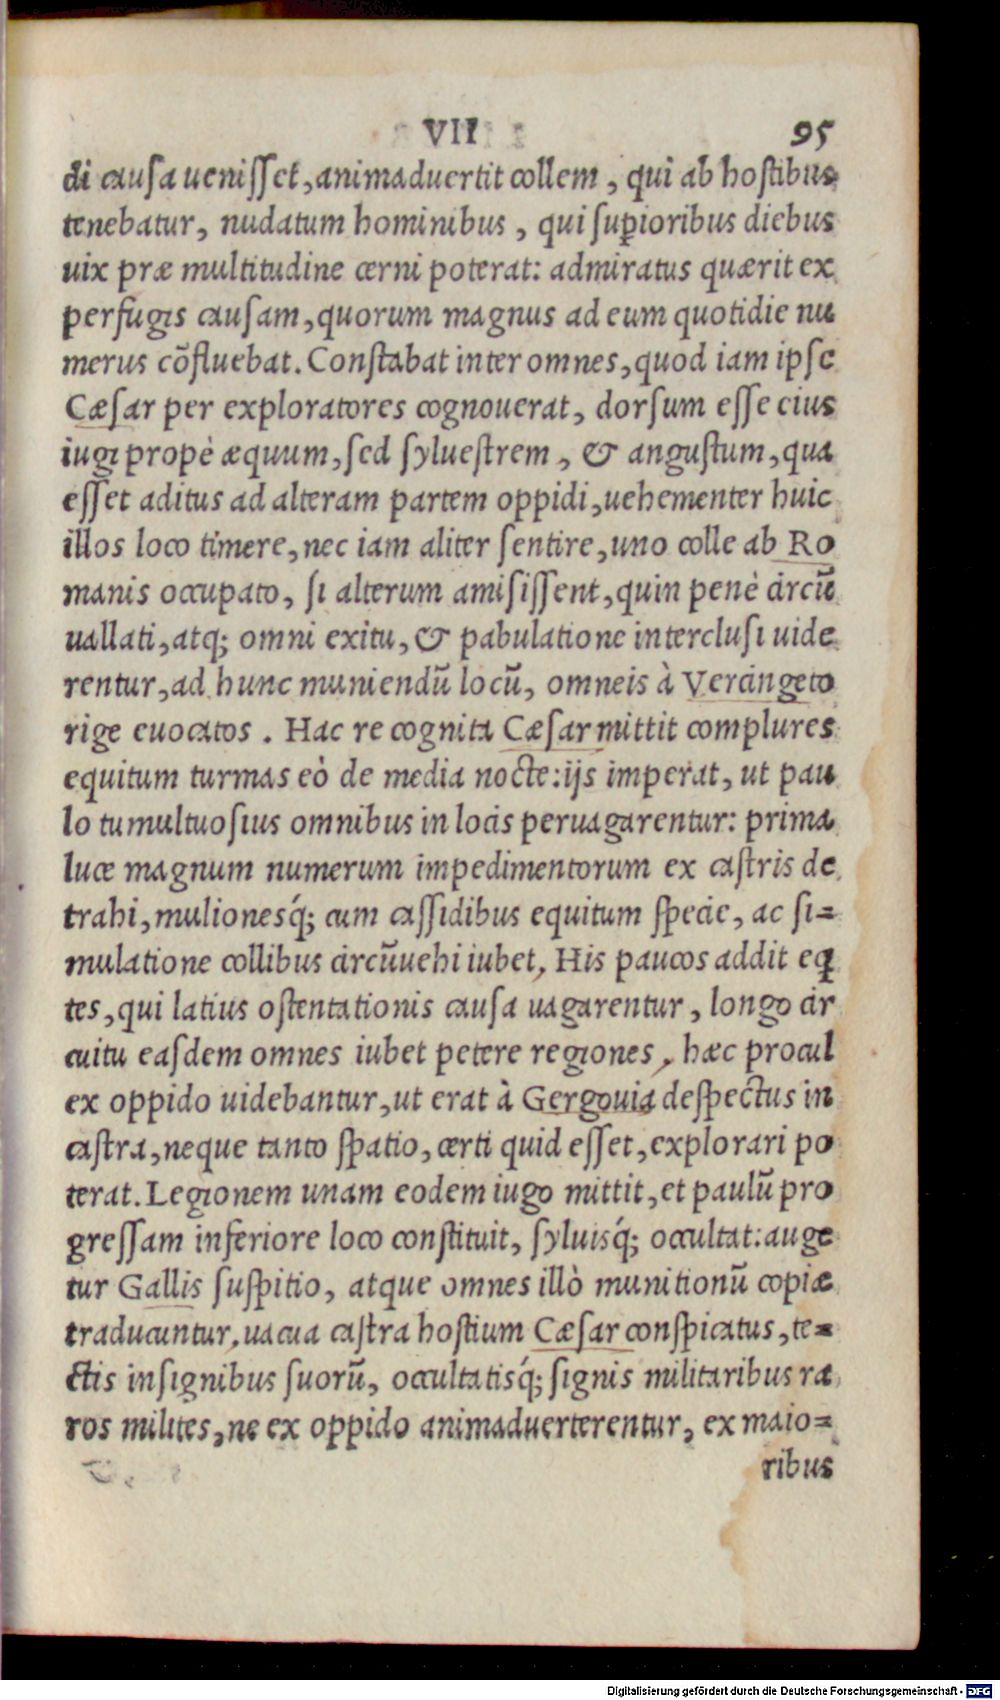 VII 95
di causa uenisset, animaduertit collem, qui ab hostibus
tenebatur, nudatum hominibus, qui sup̱ioribus diebus
uix præ multitudine cerni poterat: admiratus quærit ex
perfugis causam, quorum magnus ad eum quotidie nu
merus cōfluebat. Constabat inter omnes, quod iam ipse
Cæsar per exploratores cognouerat, dorsum esse eius
iugi propè æquum, sed syluestrem, & angustum, qua
esset aditus ad alteram partem oppidi, uehementer huic
illos loco timere, nec iam aliter sentire, uno colle ab Ro
manis occupato, si alterum amisissent, quin penè circū
uallati, atq; omni exitu, & pabulatione interclusi uide
rentur, ad hunc muniendū locū, omneis à Vercingeto
rige euocatos. Hac re cognita Cæsar mittit complures
equitum turmas eò de media nocte: ijs imperat, ut pau
lo tumultuosius omnibus in locis peruagarentur: prima
luce magnum numerum impedimentorum ex castris de
trahi, mulionesq́; cum cassidibus equitum specie, ac si=
mulatione collibus circūuehi iubet, His paucos addit eq
tes, qui latius ostentationis causa uagarentur, longo cir
cuitu easdem omnes iubet petere regiones, hæc procul
ex oppido uidebantur, ut erat à Gergouia despectus in
castra, neque tanto spatio, certi quid esset, explorari po
terat. Legionem unam eodem iugo mittit, et paulū pro
gressam inferiore loco constituit, syluisq́; occultat: auge
tur Gallis suspitio, atque omnes illò munitionū copiæ
traducuntur, uacua castra hostium Cæsar conspicatus, te=
ctis insignibus suorū, occultatisq́; signis militaribus ra
ros milites, ne ex oppido animaduerterentur, ex maio=
ribus
Digitalisierung gefördert durch die Deutsche Forschungsgemeinschaft - DFG